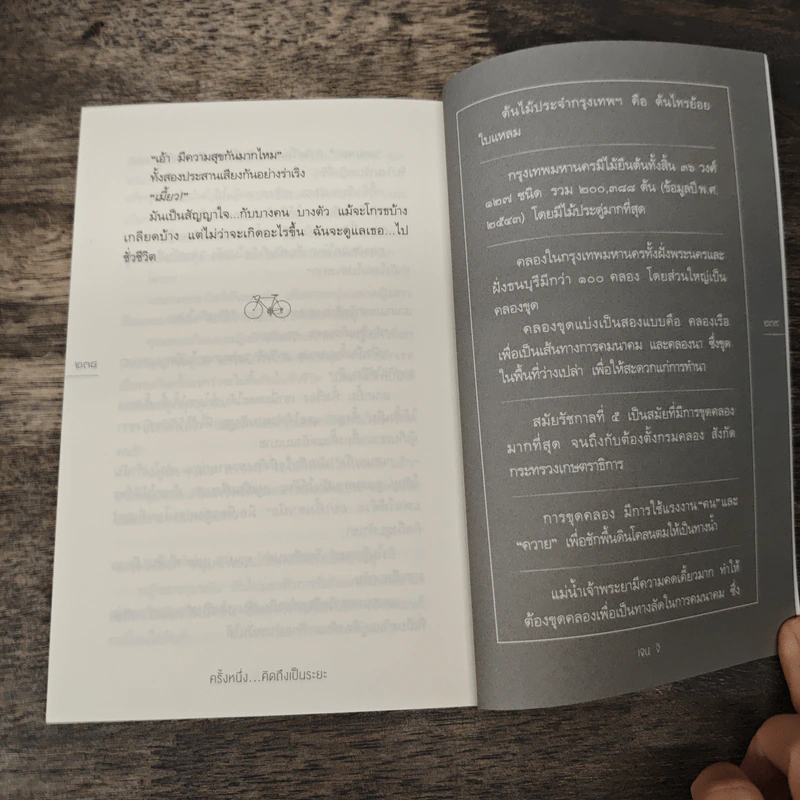 "เอ้า มีความสุขกันมากไหม"
ทั้งสองประสานเสียงกันอย่างร่าเริง
"เมี้ยว!"
มันเป็นสัญญาใจ...กับบางคน บางตัว แม้จะโกรธบ้าง
เกลียดบ้าง แต่ไม่ว่าจะเกิดอะไรขึ้น ฉันจะดูแลเธอ...ไป
ชั่วชีวิต
ครั้งหนึ่ง...คิดถึงเป็นระยะ
ต้นไม้ประจำกรุงเทพฯ คือ ต้นไทรย้อย
ใบแหลม
กรุงเทพมหานครมีไม้ยืนต้นทั้งสิ้น ๓๖ วงศ์
๑๒๗ ชนิด รวม ๒๐๐,๓๘๘ ต้น (ข้อมูลปีพ.ศ.
๒๕๔๓) โดยมีไม้ประดู่มากที่สุด
คลองในกรุงเทพมหานครทั้งฝั่งพระนครและ
ฝั่งธนบุรีมีกว่า ๑๐๐ คลอง โดยส่วนใหญ่เป็น
คลองขุด
คลองขุดแบ่งเป็นสองแบบคือ คลองเรือ
เพื่อเป็นเส้นทางการคมนาคม และคลองนา ซึ่งขุด
ในพื้นที่ว่างเปล่า เพื่อให้สะดวกแก่การทำนา
สมัยรัชกาลที่ ๕ เป็นสมัยที่มีการขุดคลอง
มากที่สุด จนถึงกับต้องตั้งกรมคลอง สังกัด
กระทรวงเกษตราธิการ
การขุดคลอง มีการใช้แรงงาน"คน"และ
"ควาย" เพื่อชักพื้นดินโคลนตมให้เป็นทางน้ำ
แม่น้ำเจ้าพระยามีความคดเคี้ยวมาก ทำให้
ต้องขุดคลองเพื่อเป็นทางลัดในการคมนาคม ซึ่ง
เจน จิ